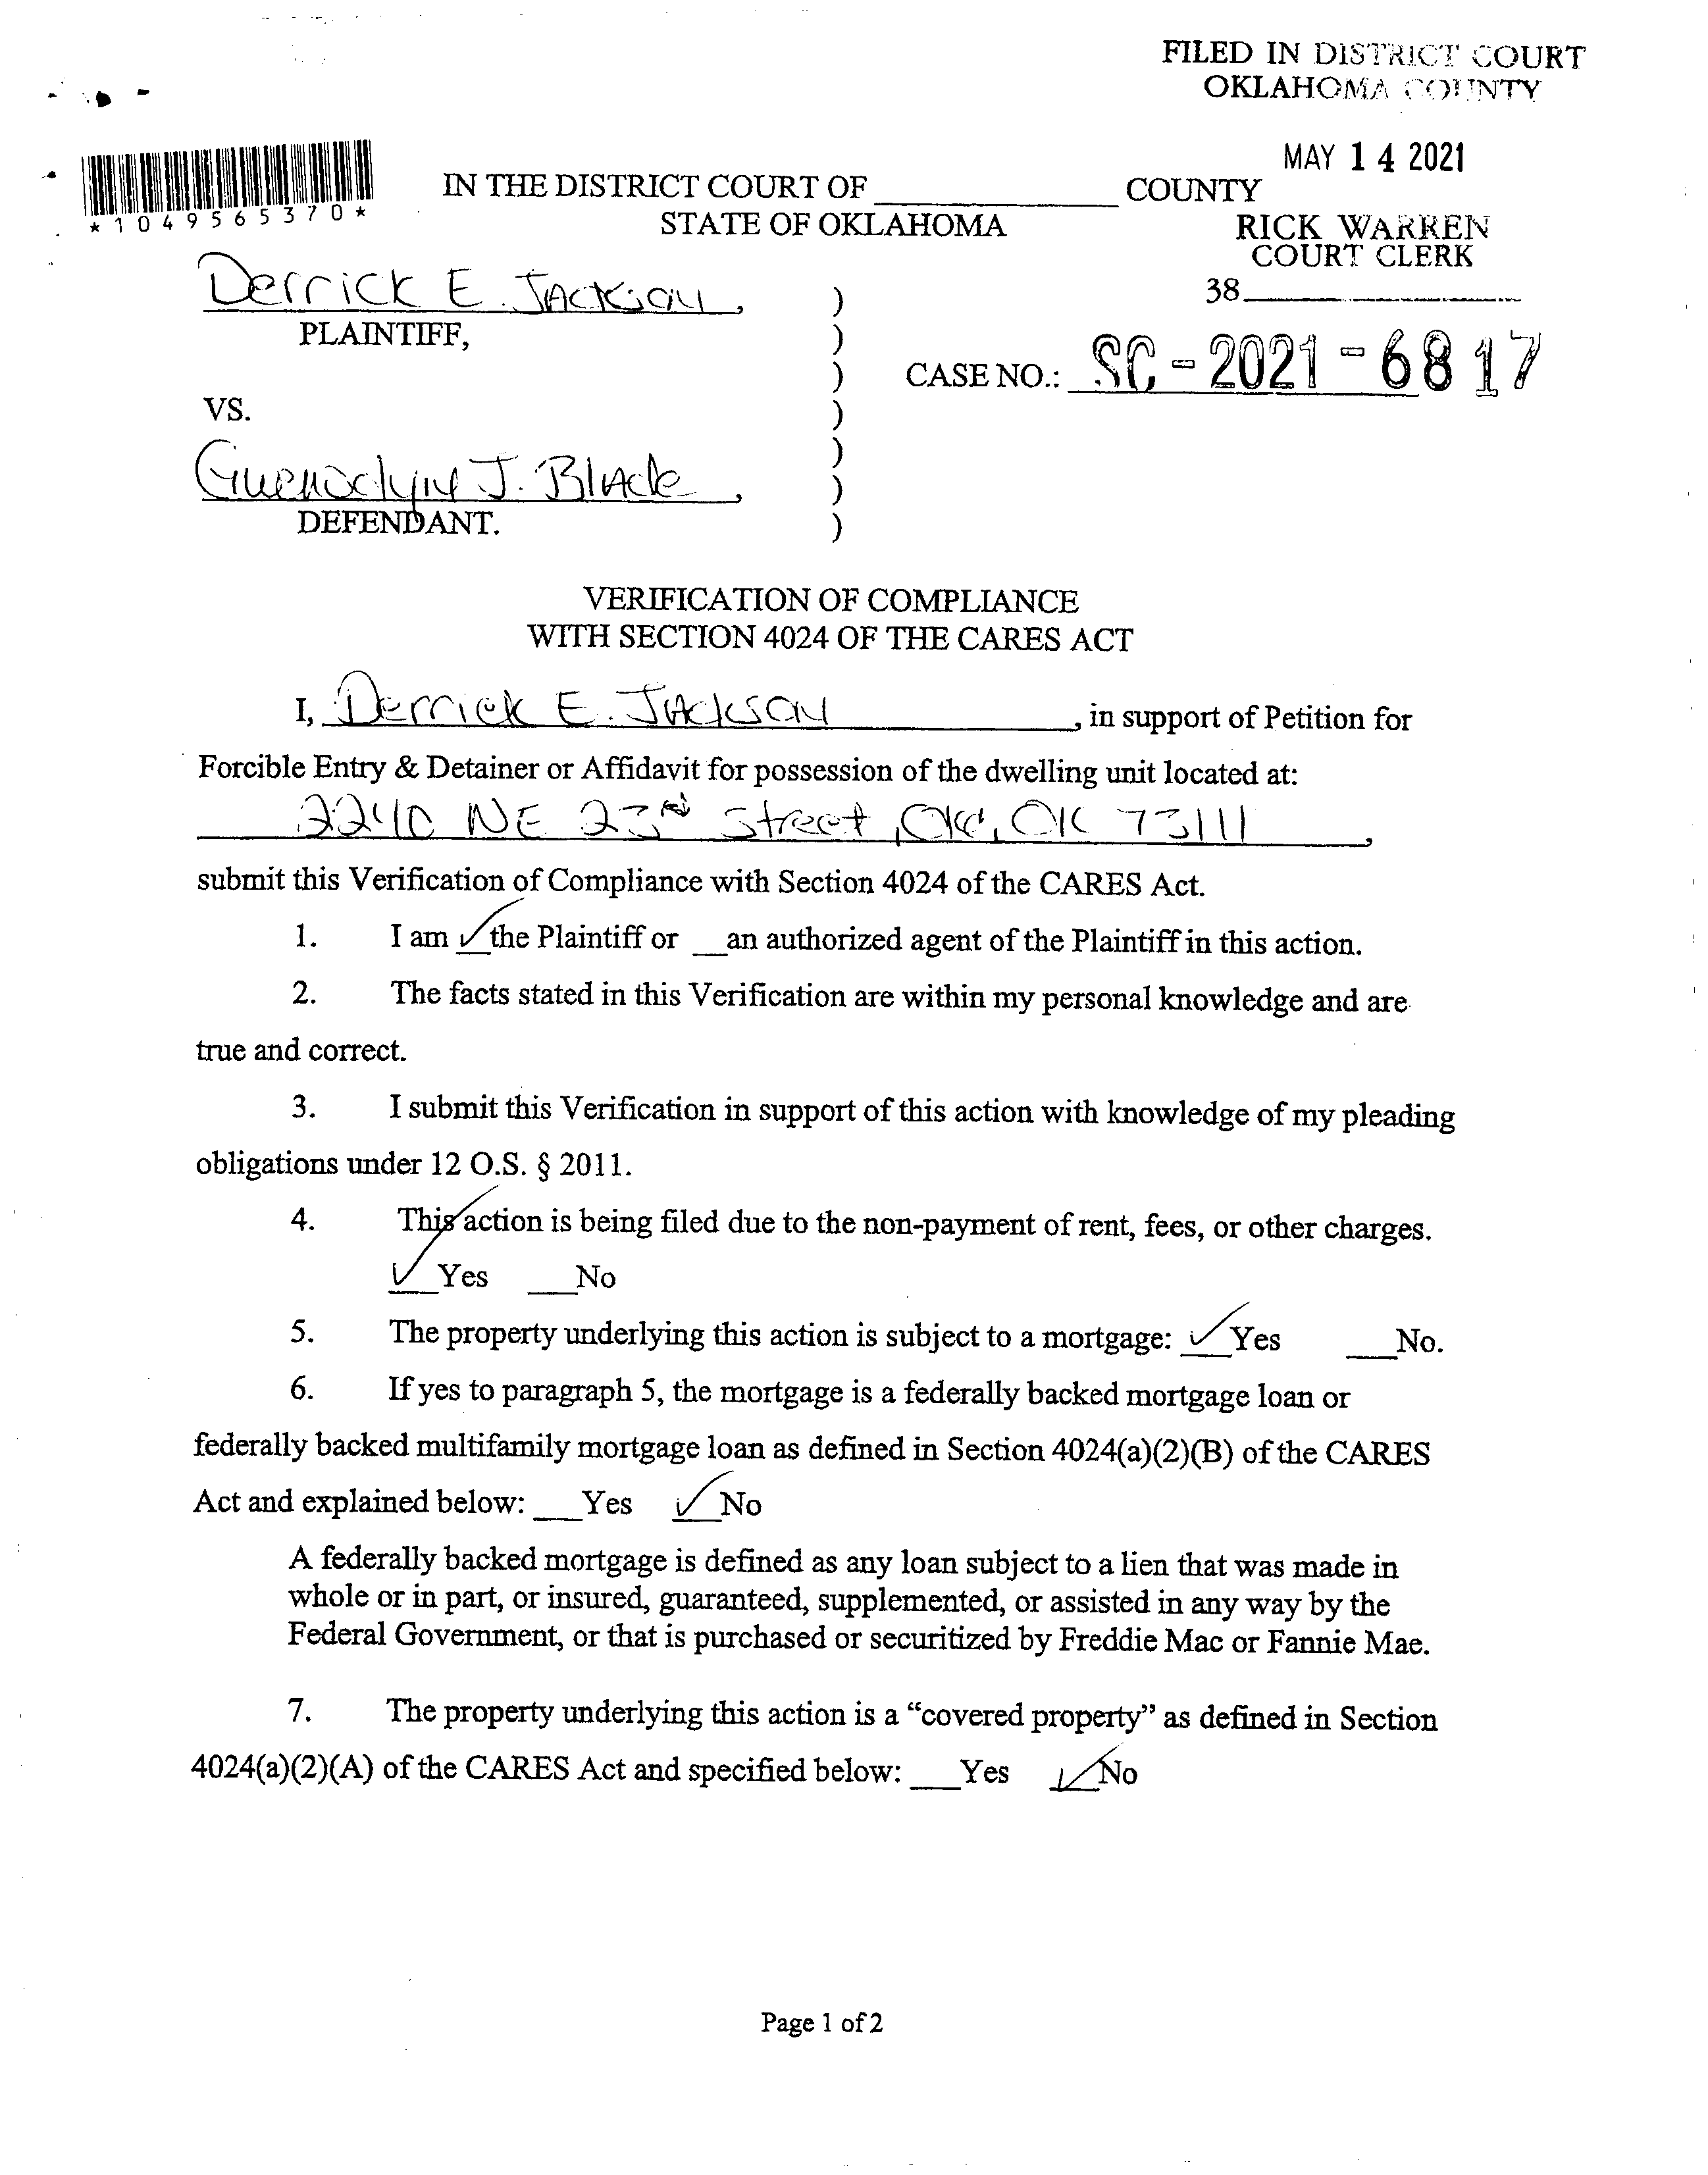 FILED IN DISTRICT COURT
OKLAHOMA COUNTY
MAY 14 2021
*1049565370*
IN THE DISTRICT COURT OF ____________ COUNTY
STATE OF OKLAHOMA
RICK WARREN
COURT CLERK
38____________
Derrick E. Jackson,
PLAINTIFF,
CASE NO.: SC-2021-6817
VS.
Gwendolyn J. Black,
DEFENDANT.
)
)
)
)
)
)
)
VERIFICATION OF COMPLIANCE
WITH SECTION 4024 OF THE CARES ACT
I, Derrick E. Jackson, in support of Petition for
Forcible Entry & Detainer or Affidavit for possession of the dwelling unit located at:
2240 NE 23rd Street, OKC, OK 73111,
submit this Verification of Compliance with Section 4024 of the CARES Act.
1. I am ✓ the Plaintiff or __an authorized agent of the Plaintiff in this action.
2. The facts stated in this Verification are within my personal knowledge and are
true and correct.
3. I submit this Verification in support of this action with knowledge of my pleading
obligations under 12 O.S. § 2011.
4. This action is being filed due to the non-payment of rent, fees, or other charges.
✓ Yes ___No
5. The property underlying this action is subject to a mortgage: ✓ Yes ___No.
6. If yes to paragraph 5, the mortgage is a federally backed mortgage loan or
federally backed multifamily mortgage loan as defined in Section 4024(a)(2)(B) of the CARES
Act and explained below: ___Yes ✓ No
A federally backed mortgage is defined as any loan subject to a lien that was made in
whole or in part, or insured, guaranteed, supplemented, or assisted in any way by the
Federal Government, or that is purchased or securitized by Freddie Mac or Fannie Mae.
7. The property underlying this action is a “covered property” as defined in Section
4024(a)(2)(A) of the CARES Act and specified below: ___Yes ✓ No
Page 1 of 2